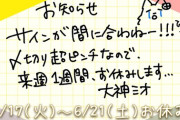 お知らせ
サインが間に合わねー!!!
〆切り超ピンチなので、
来週1週間、お休みします…
大神ミオ
/17(火)〜6/21(土)お休